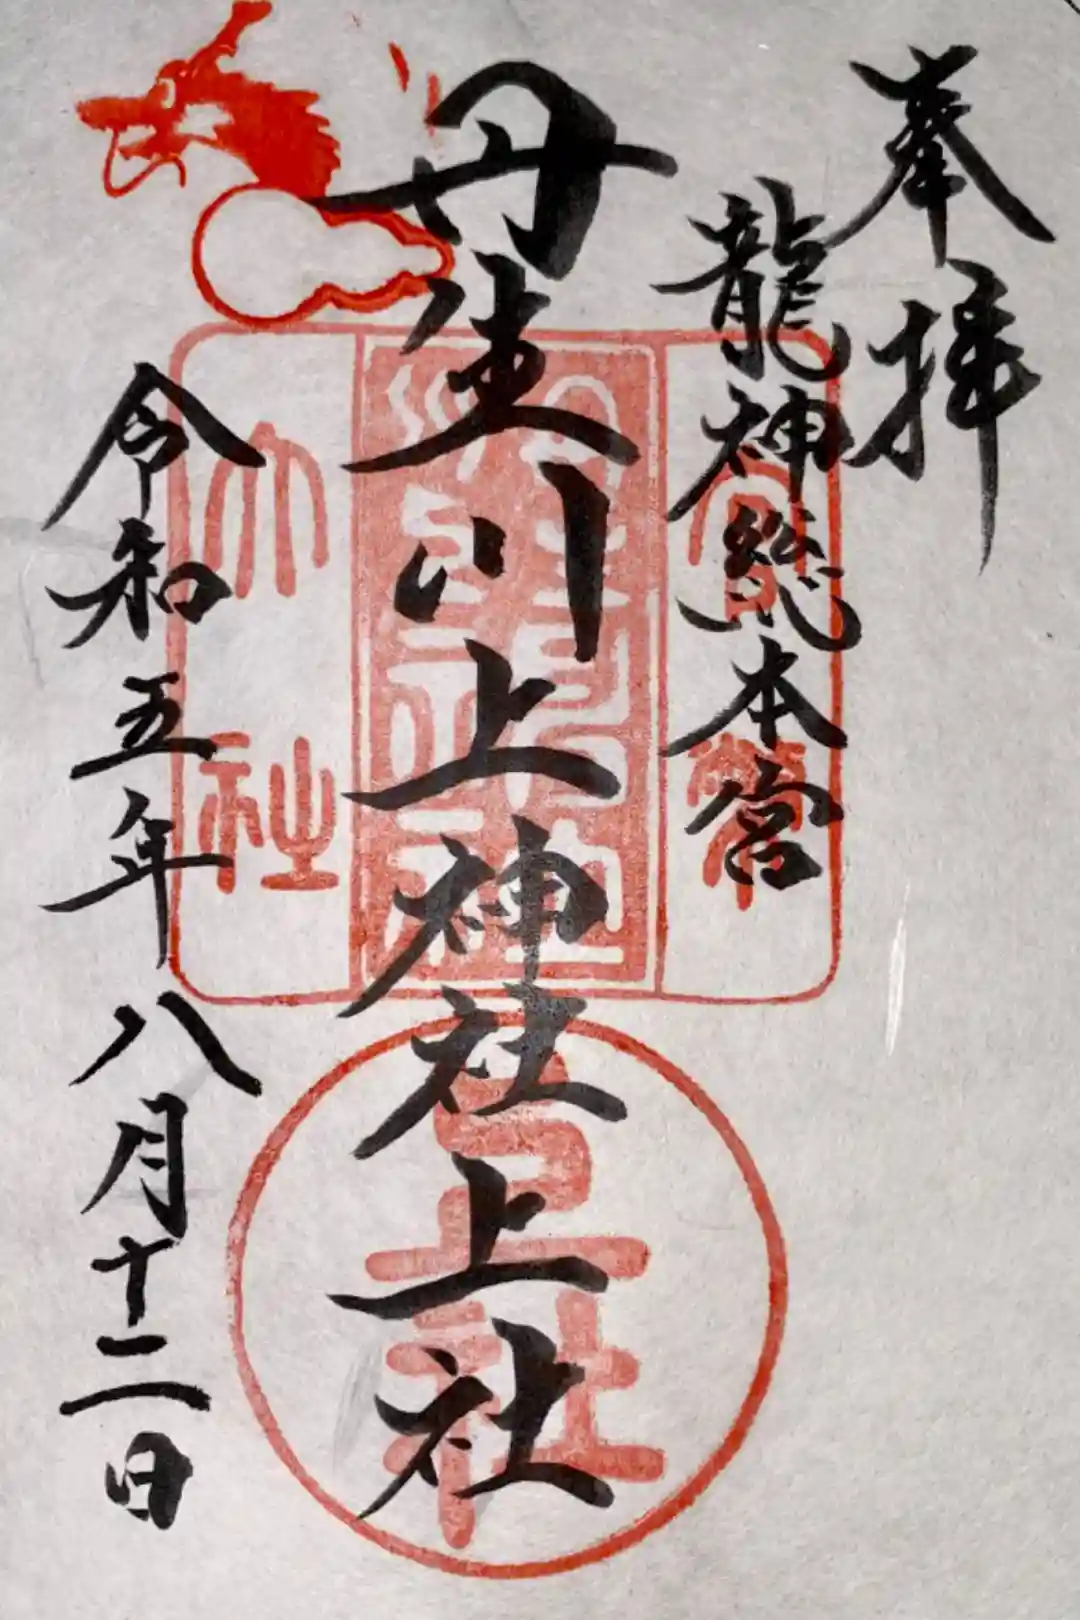 奉拝
龍神総本宮
丹生川上神社上社
令和五年八月十二日
官幣
大社
上社